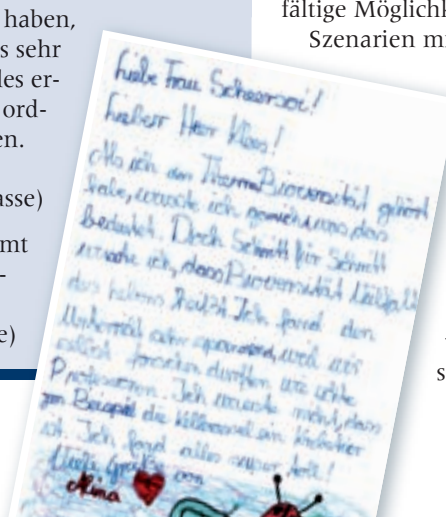 haben,
s sehr
les er-
ord-
en.
asse)
mt
-
e)
fältige Möglichk
Szenarien mi
s
Liebe Frau Scheersoi!
Lieberr Herr Klees!
Als ich den Thema Bioversität gehört
habe, wusste ich garnicht was das
bedeutet. Doch Schritt für Schritt
wusste ich, dass Bioversität
das heißt. Ich fand den
Unterricht sehr spannend, weil wir
selbst forschen durften wie echte
Professoren. Ich wusste nicht, dass
zum Beispiel die ein
ist. Ich fand alles super toll!
Liebe Grüße von
Alina